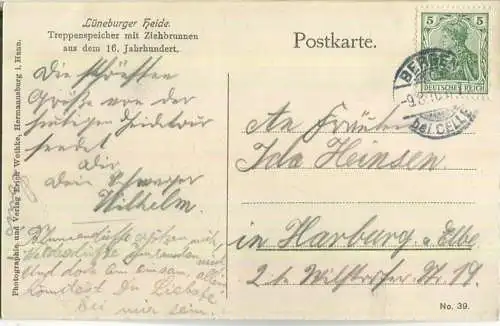 Lüneburger Heide.
Treppenspeicher mit Ziehbrunnen
aus dem 16. Jahrhundert.
Postkarte.
5 5
DEUTSCHES REICH
BERGEN
bei CELLE
Die schönsten
Grüße von der
heutigen Heidetour
sendet
Dir
Dein Schwager
Wilhelm.
und
Du Liebste
bei mir sein.
An Fräulein
Ida Heinsen
in Harburg a/Elbe
2te Wilstorfer Str. 19.
Photographie und Verlag Erich Wothke, Hermannsburg i. Hann.
No. 39.